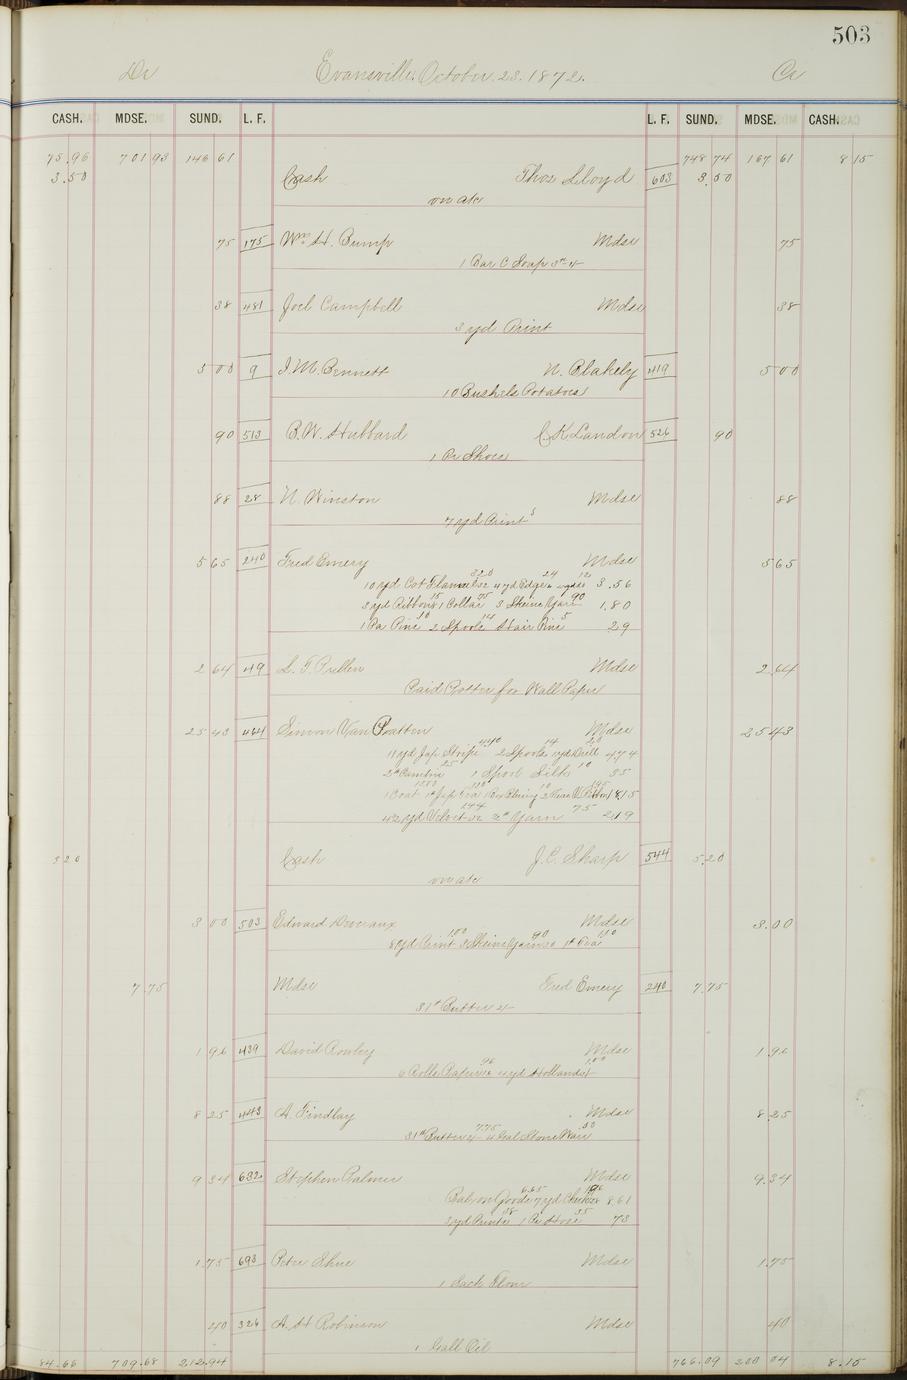 503
Dr Evansville, October. 23. 1872. Cr
CASH. MDSE. SUND. L. F. L. F. SUND. MDSE. CASH.
75.96 701 93 146 61 748 74 167 61 8 15
3.50 Cash Thos Lloyd 603 3.50
on a/c
75 175 Wm H. Bump Mdse 75
1 Bar C Soap
38 481 Joel Campbell Mdse 38
3 yd Print
5 00 9 I. M. Bennett N. Blakely 419 5 00
10 Bushels Potatoes
90 513 B. W. Hubbard C. K Landon 526 90
1 Pr Shoes
88 28 N. Winston Mdse 88
7 yd Print
5 65 240 Fred Emery Mdse 5 65
320 24 12
10 yd Cot Flannel 32 4 yd Edge 6 3.56
15 75 90
3 yd Ribbon 1 Collar 3 Skeins Yarn 1.80
10 14 5
1 Pa Pins 2 Spools Hair Pins 29
2 64 49 L. T. Pullen Mdse 2.64
Paid Potter for Wall Paper
25 43 464 Simon Van Patten Mdse 25 43
440 14 20
11 yd Jap Stripe 2 Spools yd Drill 4 74
25 10
Cambric 1 Spool Silk 35
1 Coat 18.15
244 75
yd Velvet Yarn 219
5 20 Cash J. C. Sharp 544 5.20
on a/c
3 00 503 Edward Devereaux Mdse 3.00
100 90 110
8 yd Print 3 Skeins Yarn 30 1# Tea
7.75 Mdse Fred Emery 240 7.75
31# Butter
1 96 439 David Rowley Mdse 1 96
96 1.00
6 Rolls Paper 16 4 yd Holland
8 25 443 A. Findlay Mdse 8.25
7.75 50
31# Butter 4 Gal Stone Ware
9 34 632 Stephen Palmer Mdse 9.34
6.65 196
Bal on Goods 7 yd Check 28 8.61
38 35
3 yd Print 1 Pr Hose 73
1.75 693 Peter Shue Mdse 1.75
1 Sack Flour
40 326 A. H Robinson Mdse 40
1 Gall Oil
84.66 709.68 212.94 766.09 200 04 8.15